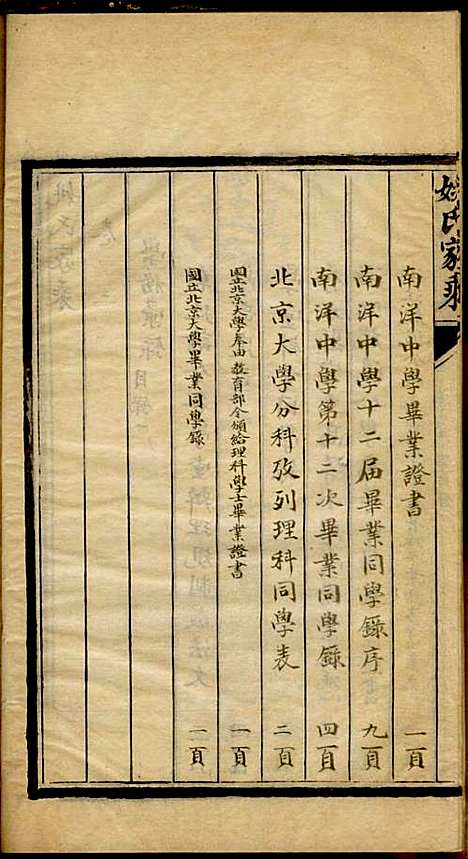 姚氏家乘
南洋中學畢業證書 一頁
南洋中學十二屆畢業同學錄序 九頁
南洋中學第十二次畢業同學錄 四頁
北京大學分科攷列理科同學表 二頁
國立北京大學奉由教育部令頒給理科學士畢業證書 一頁
國立北京大學畢業同學錄 一頁